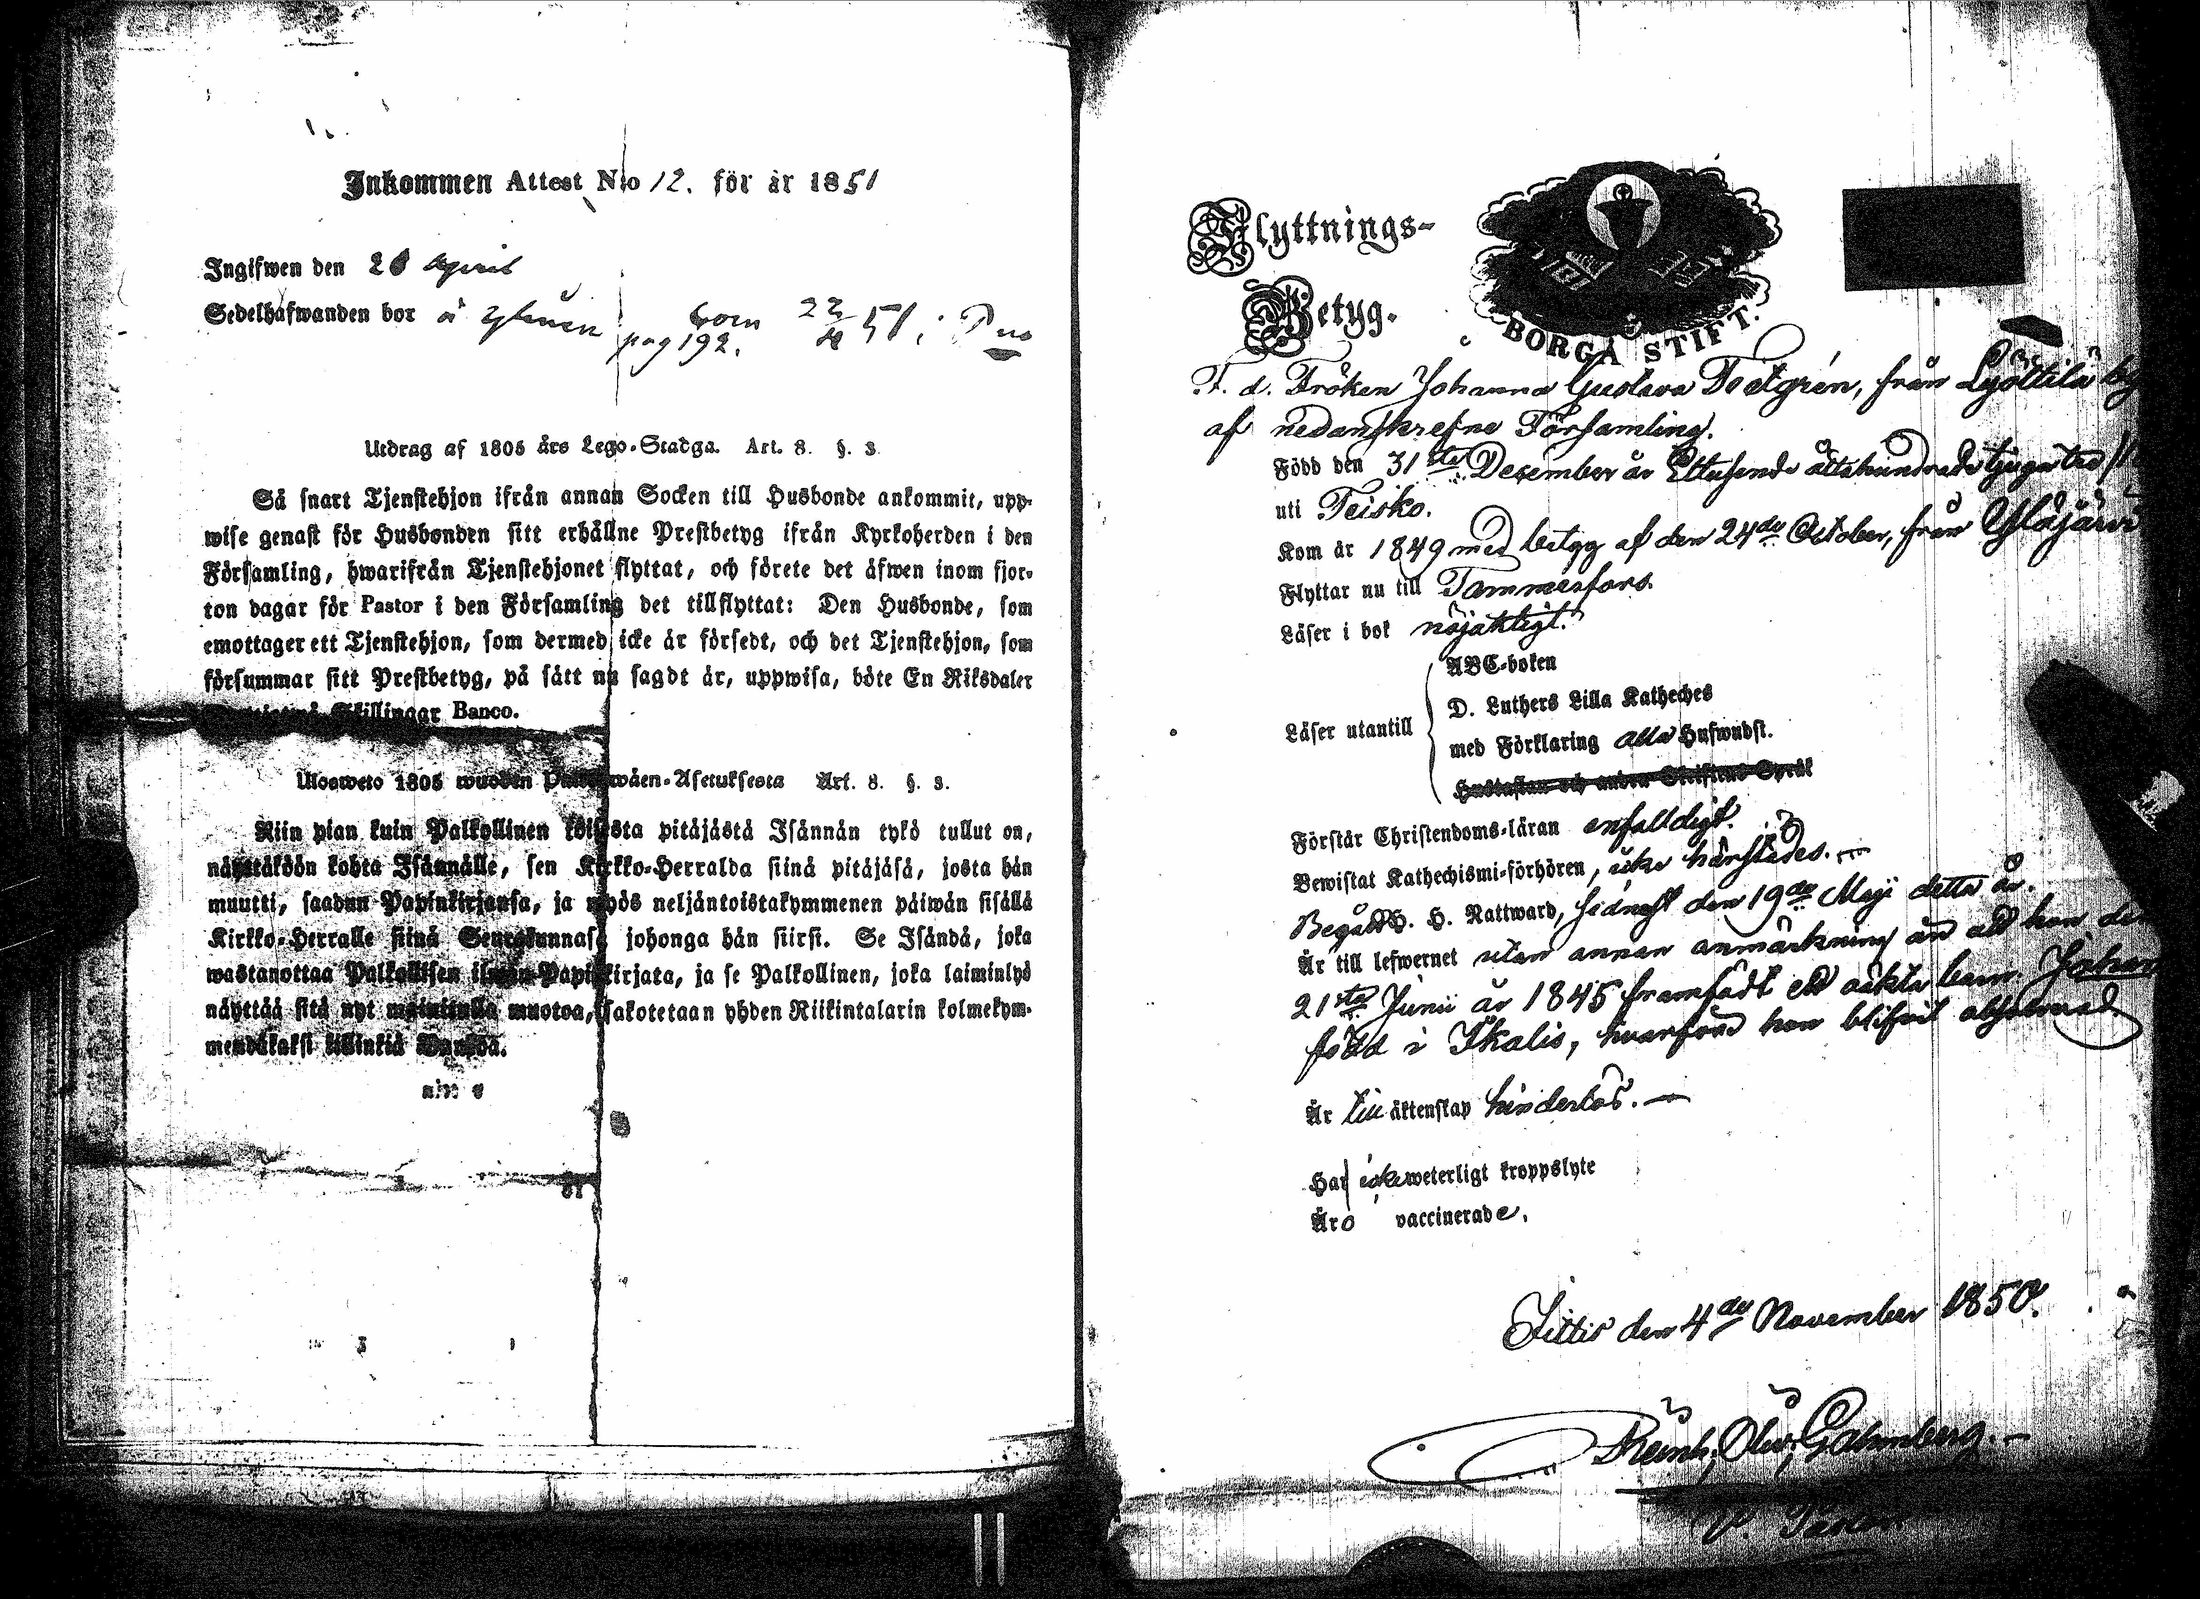 Inkommen Attest No 12. för år 1851
Ingifwen den 26 April
Sedelhafwanden bor å
pag 192.
Utdrag af 1805 års Lego-Stadga. Art. 8. §. 3.
Så snart Tjenstehjon ifrån annan Socken till Husbonde ankommit, upp-
wise genast för Husbonden sitt erhållne Prestbetyg ifrån Kyrkoherden i den
Församling, hwarifrån Tjenstehjonet flyttat, och förete det äfwen inom fjor-
ton dagar för Pastor i den Församling det tillflyttat: Den Husbonde, som
emottager ett Tjenstehjon, som dermed icke är försedt, och det Tjenstehjon, som
försummar sitt Prestbetyg, på sätt nu sagdt är, uppwisa, böte En Riksdaler
Skillingar Banco.
Ulosweto 1805 wuoden Asetuksesta Art. 8. §. 3.
Niin pian kuin Palkollinen toisesta pitäjästä Isännän tykö tullut on,
näyttäköön kohta Isännälle, sen Kirkko-Herralda siinä pitäjäsä, josta hän
muutti, saadun Papinkirjansa, ja myös neljäntoistakymmenen päiwän sisällä
Kirkko-Herralle siinä Seurakunnasa johonga hän siirsi. Se Isändä, joka
wastanottaa Palkollisen ilman Papinkirjata, ja se Palkollinen, joka laiminlyö
näyttää sitä nyt mainitulla muotoa, sakotetaan yhden Riikintalarin kolmekym-
mendäkaksi killinkiä
Flyttnings-
Betyg.
BORGÅ STIFT.
F. d. Fröken Johanna Gustava från Lyöttilä by
af nedanskrefne Församling.
Född den 31sta December år Ettusende åttahundrade tjugutre
uti Teisko.
Kom år 1849 med betyg af den 24de October, från Ylöjärvi
Flyttar nu till Tammerfors.
Läser i bok nöjaktigt.
ABC-boken
D. Luthers Lilla Katheches
Läser utantill
med Förklaring alla Hufwudst.
Hustaflan och andra Skriftens Språk
Förstår Christendoms-läran enfaldigt.
Bewistat Kathechismi-förhören, icke härstädes.
Begått H. H. Nattward, sednast den 19de Maji detta år.
Är till lefwernet utan annan anmärkning än att hon den
21sta Junii år 1845 framfödt ett oäkta barn Johan
född i Ikalis, hvarföre hon blifvit absolverad
Är till äktenskap hinderlös.
Har icke weterligt kroppslyte
Är o vaccinerade.
Jittis den 4de November 1850.
Reinh. Olir.
V. Pastor